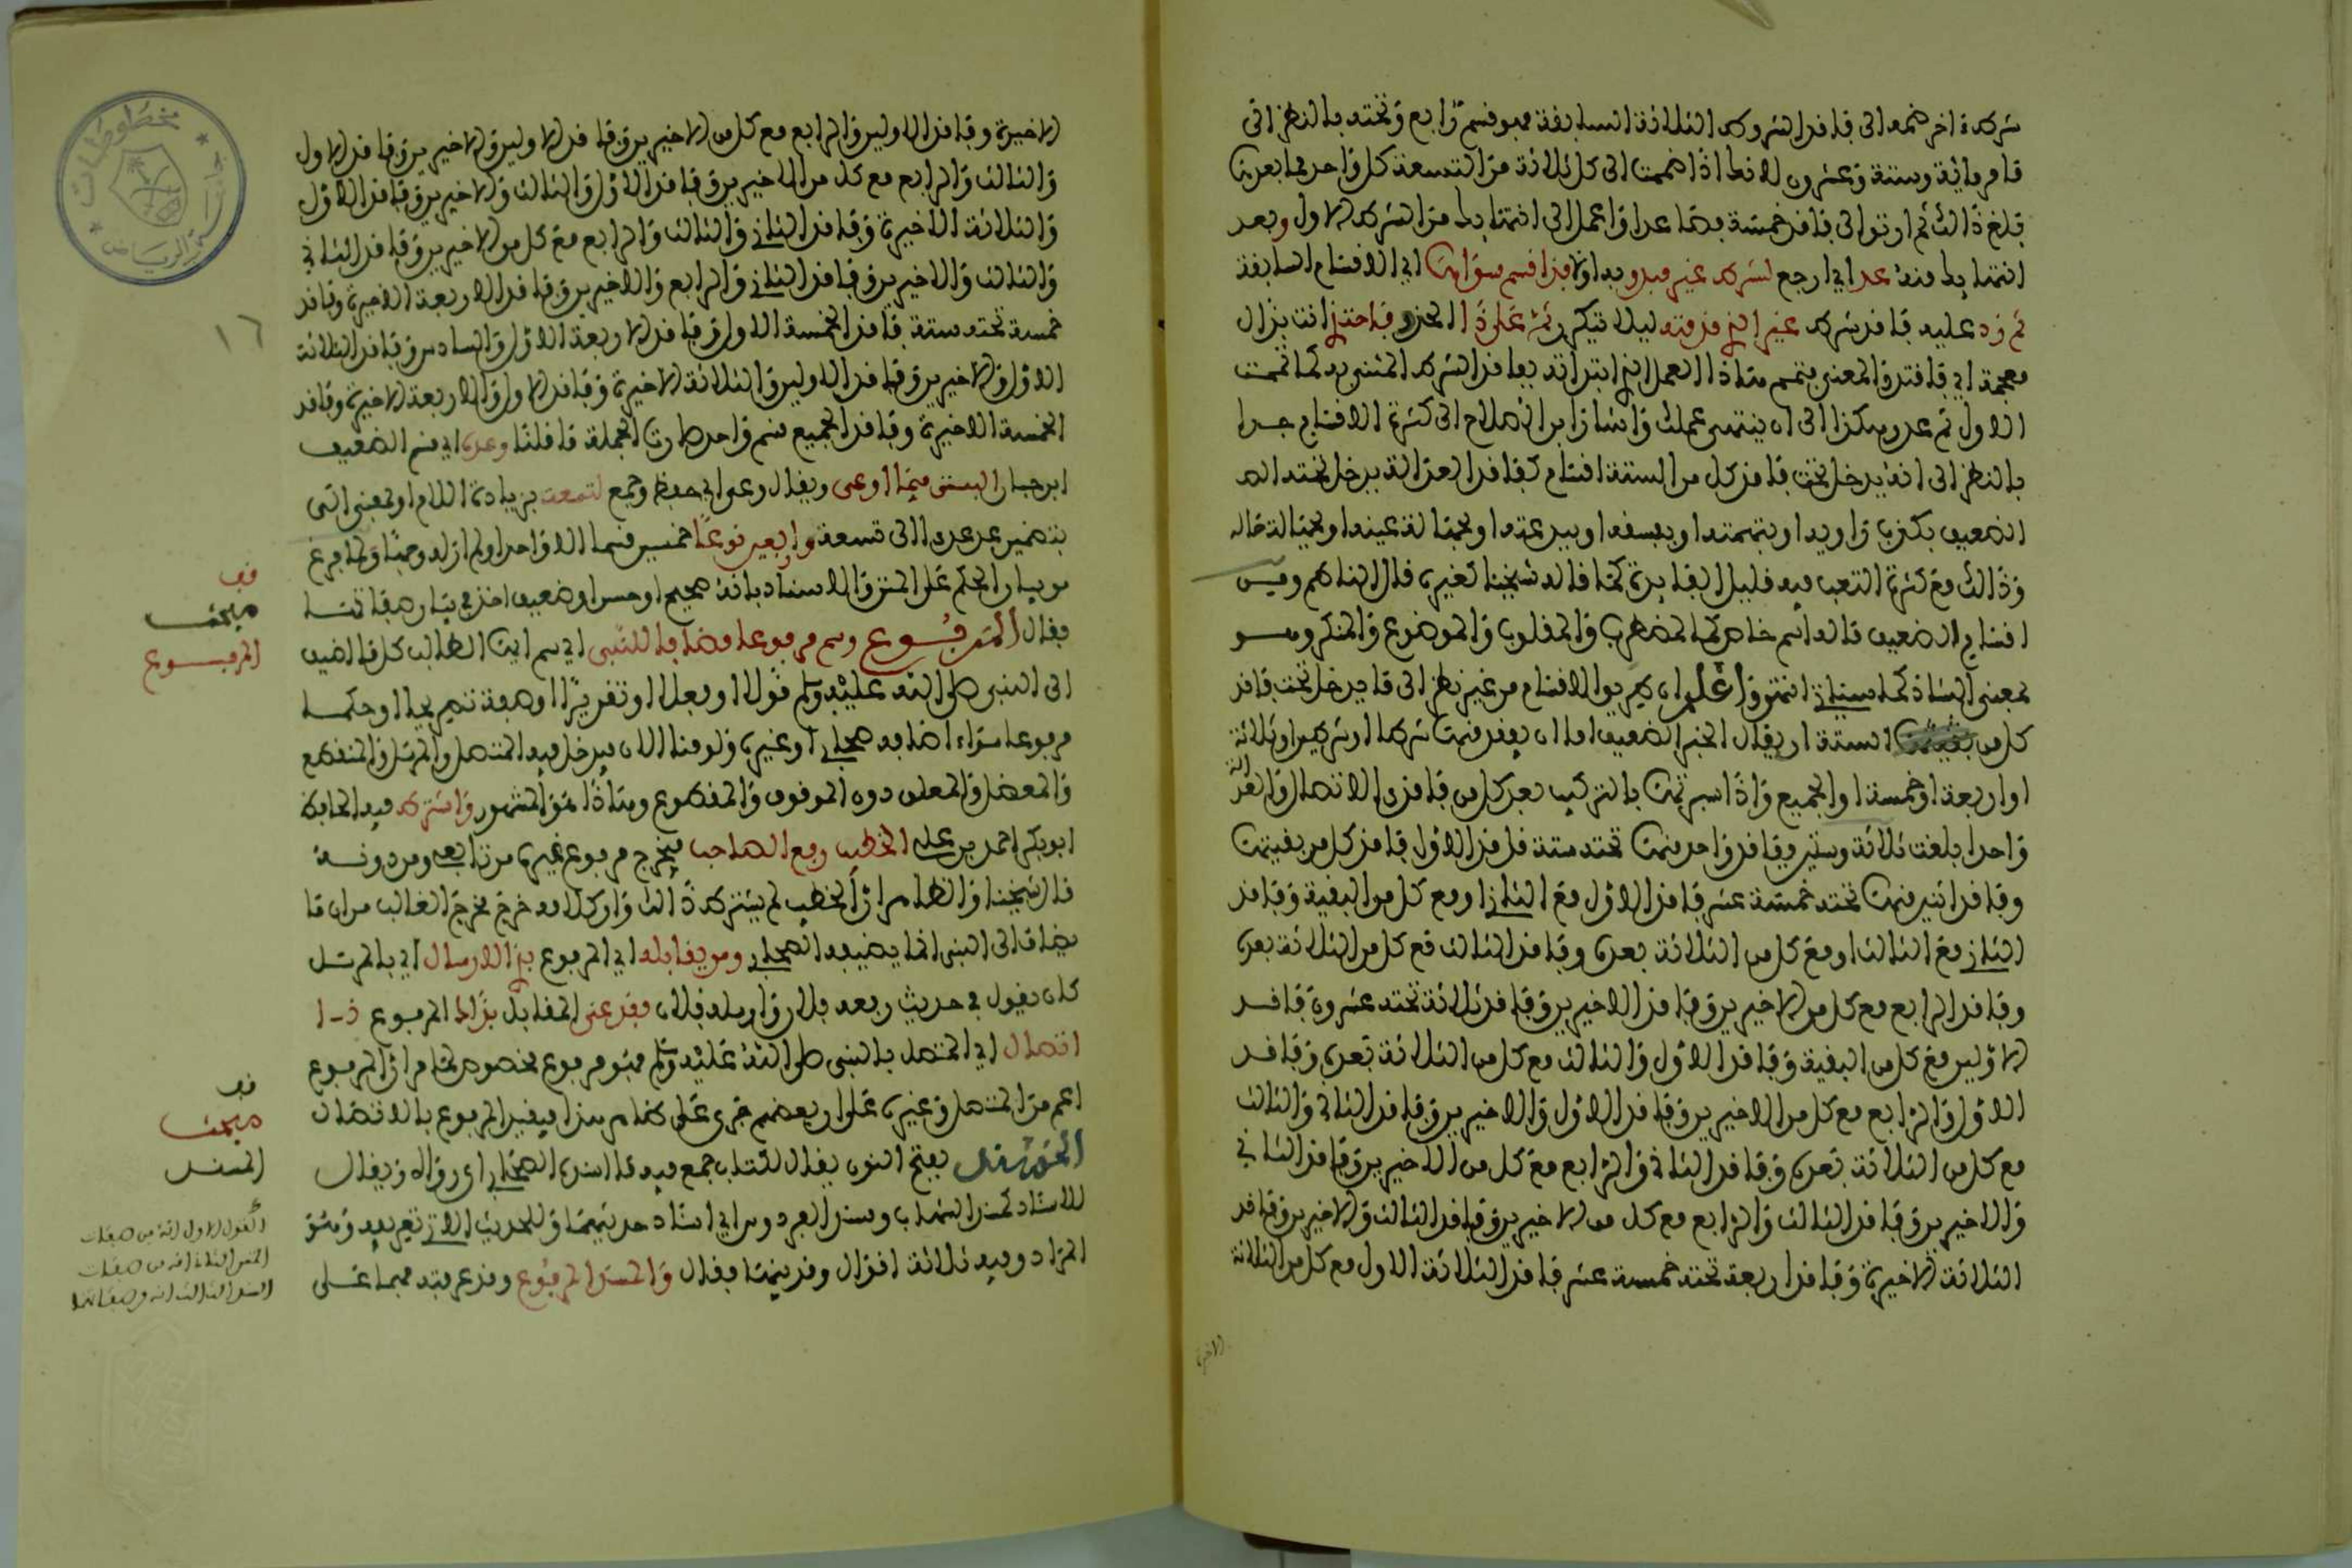 شركه اخر ضمه الى فاقد الشروط الثلاثة السابقة فهو قسم رابع وتحته بالنظر الى
ما مر مائة وستة وعشرون لانها اذا ضمت الى كل ثلاثة من التسعة كل واحد مما بعدها
بلغ ذالك ثم ارتق الى فاقد خمسة فصاعدا واعمل الى انتهايك من الشرط الاول وبعد
انتهايك منه عد اي ارجع لشرط غير مبدو به اولا فذا قسم سواها اي الاقسام السابقة
ثم زد عليه فاقد شرط غير الذي قدمته ليلا تتكرر ثم على ذا الحذو فاحتذ انت بذال
معجمة اي فاقتد والمعنى تمم هاذا العمل الذي ابتداته بفاقد الشرط المثنى به كما تممت
الاول ثم عد وهكذا الى ان ينتهى عملك واشار ابن الصلاح الى كثرة الاقسام جدا
بالنظر الى انه يدخل تحت فاقد كل من الستة اقسام كفاقد العدالة يدخل تحته الـ
الضعيف بكذب راويه او بتهمته او بفسقه او ببدعته او بجهالة عينه او بجهالة حاله
وذالك مع كثرة التعب فيه قليل الفايدة كما قاله شيخنا كغيره قال الناظم ومن
اقسام الضعيف ما له اسم خاص كالمضطرب والمقلوب والموضوع والمنكر وهو
بمعنى الشاذ كما سياتي انتهى واعلم ان طريق الاقسام من غير نظر الى ما يدخل تحت فاقد
كل من الستة ان يقال الخبر الضعيف اما ان يفقد منها شرطا او شرطين او ثلاثة
او اربعة او خمسة او الجميع واذا سبرتها بالتركيب بعد كل من فاقدى الاتصال والعدالة
واحدا بلغت ثلاثة وستين فاقد واحد منها تحته ستة فاقد الاول فاقد كل من بقيتها
وفاقد اثنين منها تحته خمسة عشر فاقد الاول مع الثاني او مع كل من البقية وفاقد
الثاني مع الثالث او مع كل من الثلاثة بعده وفاقد الثالث مع كل من الثلاثة بعده
وفاقد الرابع مع كل من الاخيرين وفاقد الاخيرين وفاقد ثلاثة تحته عشرون فاقد
الاولين مع كل من البقية وفاقد الاول والثالث مع كل من الثلاثة بعده وفاقد
الاول والرابع مع كل من الاخيرين وفاقد الاول والاخيرين وفاقد الثاني والثالث
مع كل من الثلاثة بعده وفاقد الثاني والرابع مع كل من الاخيرين وفاقد الثاني
والاخيرين وفاقد الثالث والرابع مع كل من الاخيرين وفاقد الثالث والاخيرين وفاقد
الثلاثة الاخيرة وفاقد اربعة تحته خمسة عشر فاقد الثلاثة الاول مع كل من الثلاثة
الاخيرة
الاخيرة وفاقد الاولين والرابع مع كل من الاخيرين وفاقد الاولين والاخيرين وفاقد الاول
والثالث والرابع مع كل من الاخيرين وفاقد الاول والثالث والاخيرين وفاقد الاول
والثلاثة الاخيرة وفاقد الثاني والثالث والرابع مع كل من الاخيرين وفاقد الثاني
والثالث والاخيرين وفاقد الثاني والرابع والاخيرين وفاقد الاربعة الاخيرة وفاقد
خمسة تحته ستة فاقد الخمسة الاول وفاقد الاربعة الاول والسادس وفاقد الثلاثة
الاول والاخيرين وفاقد الاولين والثلاثة الاخيرة وفاقد الاول والاربعة الاخيرة وفاقد
الخمسة الاخيرة وفاقد الجميع قسم واحد صارت الجملة ما قلنا وعده اي قسم الضعيف
ابن حبان البستى فيما اوعى ويقال وعى اي حفظ وجمع لتسعة بزيادة اللام او بمعنى الى
بتضمين عد عده الى تسعة واربعين نوعا خمسين قسما الا واحدا ولم ار له وجها ولما فرغ
من بيان الحكم على المتن والاسناد بانه صحيح او حسن او ضعيف اخذ في بيان صفاتها
فقال المرفوع وسم مرفوعا مضافا للنبى اي سم ايها الطالب كل ما اضيف
الى النبى صلى الله عليه وسلم قولا او فعلا او تقريرا او صفة تصريحا او حكما
مرفوعا سواء اضافه صحابي او غيره ولو منا الان فيدخل فيه المتصل والمرسل والمنقطع
والمعضل والمعلق دون الموقوف والمقطوع وهاذا هو المشهور واشترط فيه الحافظ
ابو بكر احمد بن علي الخطيب رفع الصاحب فيخرج مرفوع غيره من تابعه ومن دونه
قال شيخنا والظاهر ان الخطيب لم يشترط ذالك وان كلامه خرج مخرج الغالب من ان ما
يضاف الى النبى انما يضيفه الصحابي ومن يقابله اي المرفوع بذي الارسال اي بالمرسل
كان يقول في حديث رفعه فلان وارسله فلان فقد عنى المقابل بذاك المرفوع ذا
اتصال اي المتصل بالنبى صلى الله عليه وسلم فهو مرفوع مخصوص لما مر ان المرفوع
اعم من المتصل وغيره على ان بعضهم جرى على ظاهر هذا فيقيد المرفوع بالاتصال
المسند بفتح النون يقال لكتاب جمع فيه ما اسنده الصحابة اى رووه ويقال
للاسناد كمسند الشهاب ومسند الفردوس اي اسناد حديثهما وللحديث الاتي تعريفه وهو
المراد وفيه ثلاثة اقوال وقد بينها فقال والمسند المرفوع وقد عرفته فهما على
١٦
قف
مبحث
المرفوع
قف
مبحث
المسند
القول الاول انه من صفات
المتن الثاني انه من صفات
السند الثالث انه من صفاتهما
مخطوطات
الرياض